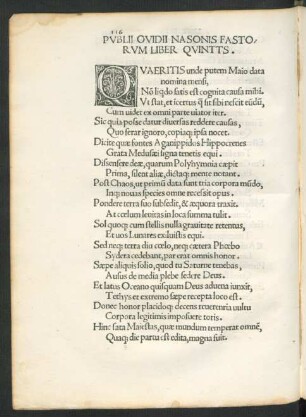 116
PVBLII OVIDII NASONIS FASTO-
RVM LIBER QVINTVS.
QVAERITIS unde putem Maio data
nomina mensi,
Nō liqdo satis est cognita causa mihi.
Vt stat, et icertus q̄ sit sibi nescit eūdū,
Cum uidet ex omni parte uiator iter.
Sic quia posse datur diuersas reddere causas,
Quo ferar ignoro, copiaq; ipsa nocet.
Dicite quæ fontes Aganippidos Hippocrenes
Grata Medusæi signa tenetis equi.
Dissensere deæ, quarum Polyhymnia cœpit
Prima, silent aliæ, dictaq; mente notant.
Post Chaos, ut primū data sunt tria corpora mūdo,
Inq; nouas species omne recessit opus.
Pondere terra suo subsedit, & æquora traxit.
At cœlum leuitas in loca summa tulit.
Sol quoq; cum stellis nulla grauitate retentus,
Et uos Lunares exiluistis equi.
Sed neq; terra diu cœlo, neq; cætera Phœbo
Sydera cedebant, par erat omnis honor.
Sæpe aliquis solio, quod tu Saturne tenebas,
Ausus de media plebe sedere Deus.
Et latus Oceano quisquam Deus aduena iunxit,
Tethys et extremo sæpe recepta loco est.
Donec honor placidoq; decens reuerentia uultu
Corpora legitimis imposuere toris.
Hinc sata Maiestas, quæ mundum temperat omnē,
Quaq; die partu est edita, magna fuit.